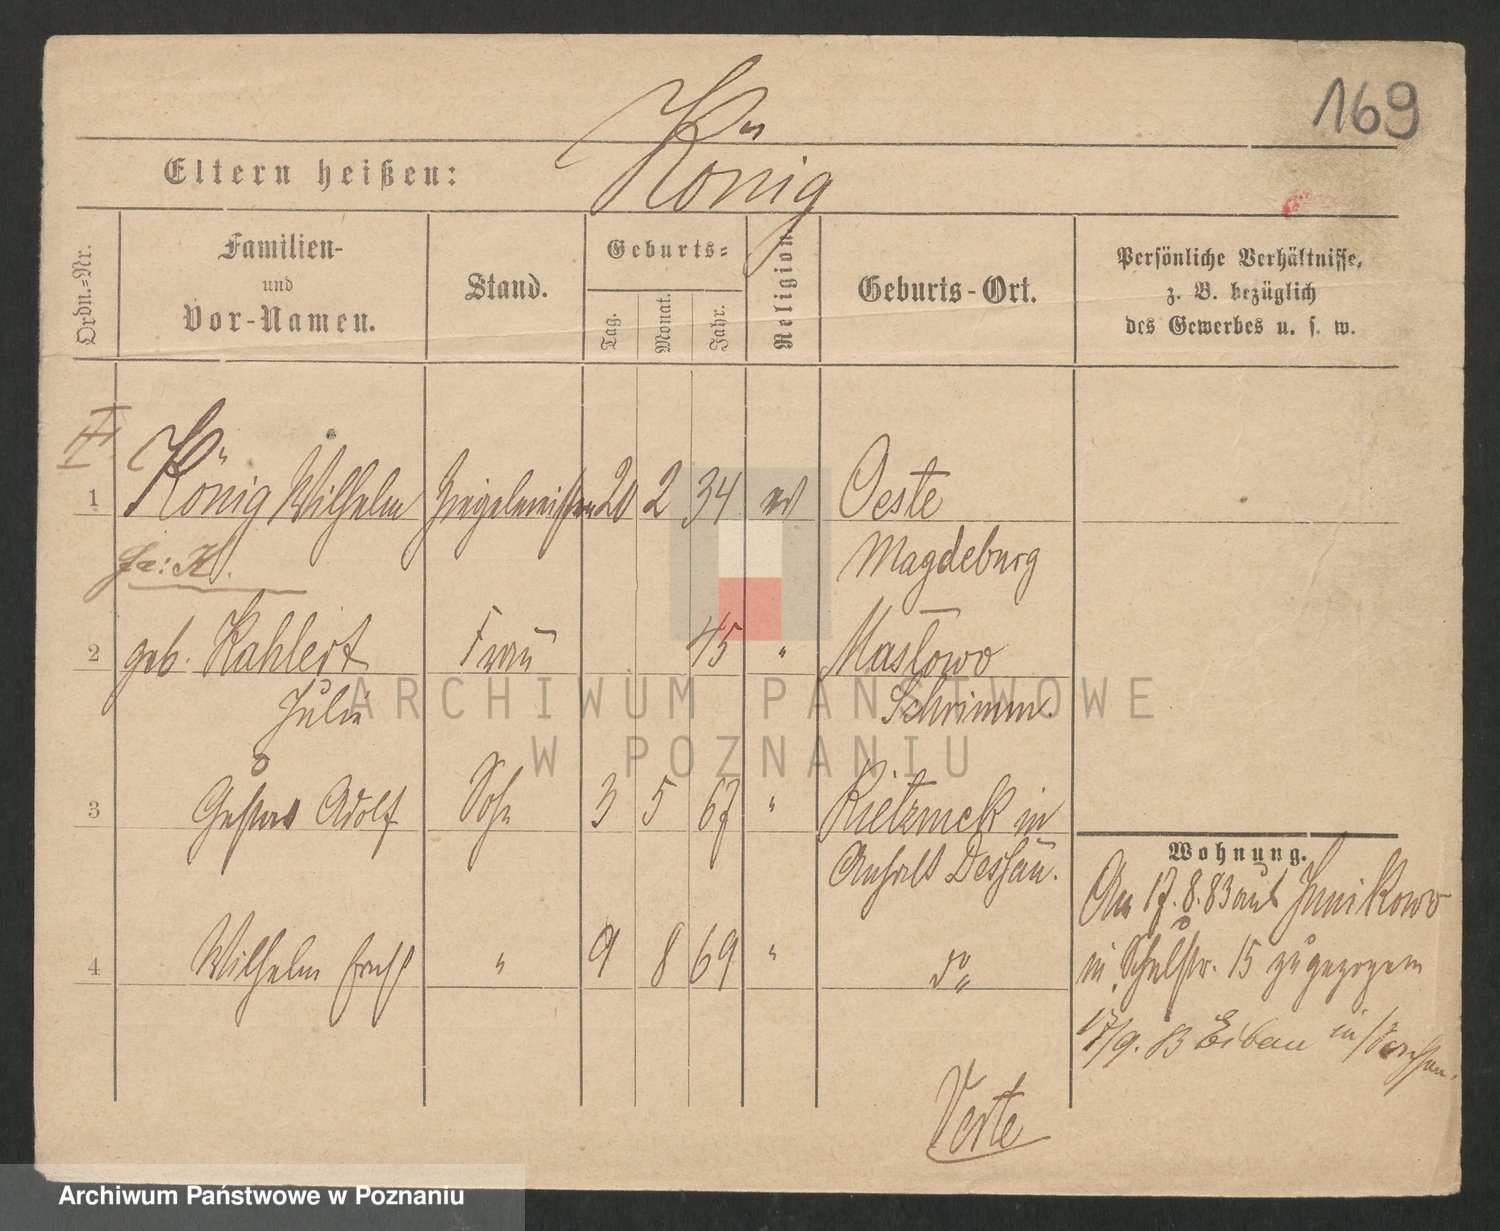 169
Kö
Eltern heißen: König
Ordn.=Nr.
Familien-
und
Vor-Namen.
Stand.
Geburts=
Tag.
Monat.
Jahr.
Religion
Geburts-Ort.
Persönliche Verhältnisse,
z. B. bezüglich
des Gewerbes u. s. w.
1 König Wilhelm Ziegelmeister 20 2 34 ev Oeste
Magdeburg
2 geb. Kahlert Frau 45 " Masłowo
Julie Schrimm.
3 Gustav Adolf Sohn 3 5 67 " Rietzmeck in
Anhalt Dessau.
4 Wilhelm Ernst " 9 8 69 " do
Wohnung.
Am 17. 8. 83 aus Junikowo
in Schulstr. 15 zugezogen
17/9. 83 Eibau in Sachsen.
Verte
ARCHIWUM PAŃSTWOWE
W POZNANIU
Archiwum Państwowe w Poznaniu